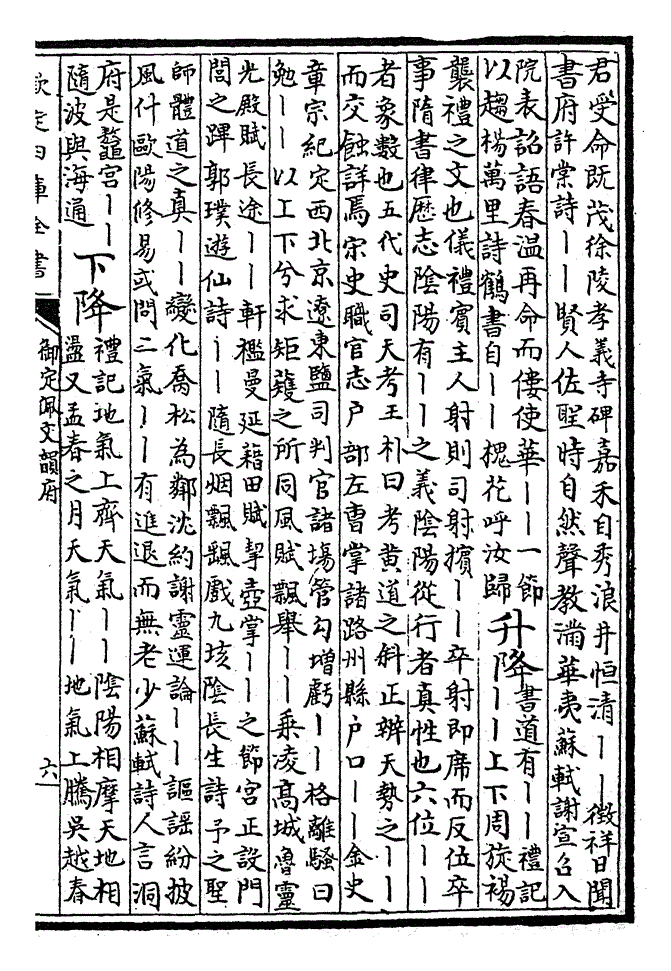 君受命既茂徐陵孝義寺碑嘉禾自秀浪井恒清丨丨徴祥日聞
書府許棠詩丨丨賢人佐聖時自然聲教滿華夷蘇軾謝宣召入
院表詔語春温再命而僂使華丨丨一節
以趨楊萬里詩鶴書自丨丨槐花呼汝歸
升降
書道有丨丨禮記
丨丨上下周旋裼
襲禮之文也儀禮賓主人射則司射擯丨丨卒射即席而反位卒
事隋書律歷志陰陽有丨丨之義陰陽從行者真性也六位丨丨
者象數也五代史司天考王朴曰考黄道之斜正辨天勢之丨丨
而交蝕詳焉宋史職官志户部左曹掌諸路州縣户口丨丨金史
章宗紀定西北京遼東鹽司判官諸場管勾增虧丨丨格離騷曰
勉丨丨以上下兮求矩矱之所同風賦飄舉丨丨乘凌高城魯靈
光殿賦長途丨丨軒檻曼延藉田賦挈壺掌丨丨之節宫正設門
閭之蹕郭璞遊仙詩丨丨隨長烟飄飄戲九垓陰長生詩予之聖
師體道之真丨丨變化喬松為鄰沈約謝靈運論丨丨謳謡紛披
風什歐陽修易或問二氣丨丨有進退而無老少蘇軾詩人言洞
府是鼇宫丨丨
隨波與海通
下降
禮記地氣上齊天氣丨丨陰陽相摩天地相
盪又孟春之月天氣丨丨地氣上騰吳越春
欽定四庫全書
御定佩文韻府
六